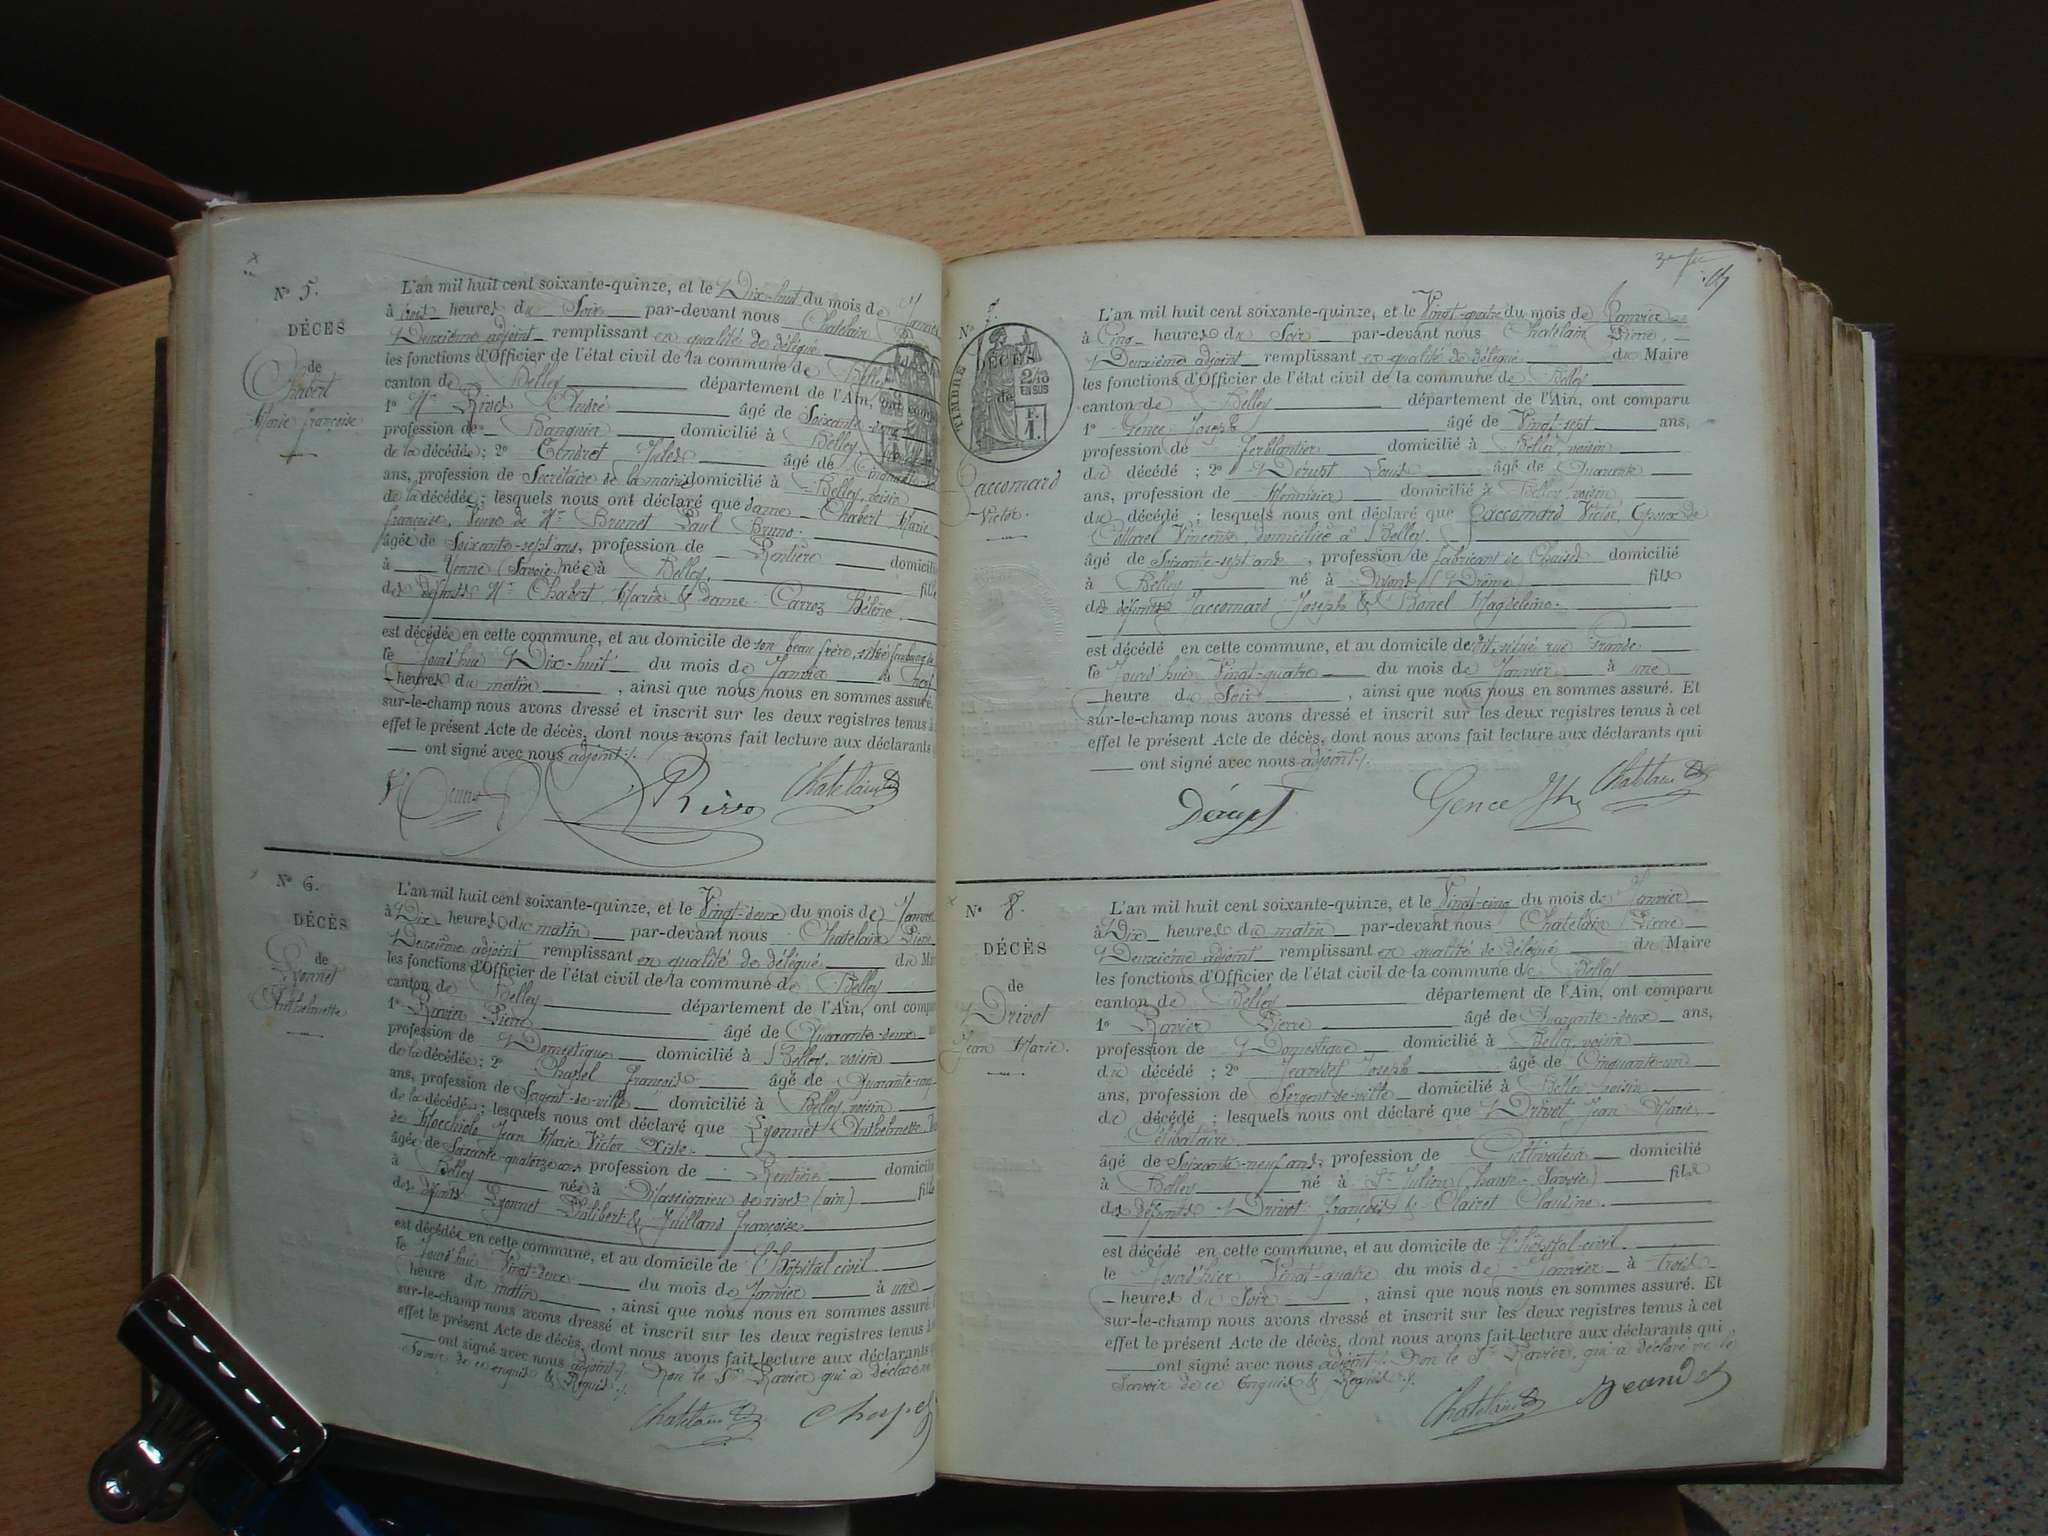 N° 5.
DÉCÈS
de
Chabert
Marie françoise
L'an mil huit cent soixante-quinze, et le Dix-huit du mois de Janvier
à trois heures du Soir par-devant nous Chatelain
Deuxième adjoint remplissant en qualité de délégué
les fonctions d'Officier de l'état civil de la commune de Belley
canton de Belley département de l'Ain, ont comp
1° Mr Rives André âgé de Soixante-deux
profession de Banquier domicilié à Belley,
de la décédée; 2° Jules âgé de Cinquante
ans, profession de Secrétaire de la mairie domicilié à Belley, voisin
de la décédée; lesquels nous ont déclaré que dame Chabert Marie
françoise, Veuve de Mr Brunet Paul Bruno.
âgée de Soixante-sept ans, profession de Rentière domicili
à Yenne (Savoie) née à Belley, fille
des défunts Mr Chabert, Marin & dame Carroz Hélène.
est décédée en cette commune, et au domicile de son beau frère, situé faubourg
le Jourd'hui Dix-huit du mois de Janvier à neuf
heures du matin , ainsi que nous nous en sommes assuré.
sur-le-champ nous avons dressé et inscrit sur les deux registres tenus à
effet le présent Acte de décès, dont nous avons fait lecture aux déclarants
ont signé avec nous adjoint ./.
Rives Chatelain
N° 6.
DÉCÈS
de
Lyonnet
Anthelmette
L'an mil huit cent soixante-quinze, et le Vingt-deux du mois de Janvier
à Dix heures du matin par-devant nous Chatelain Pierre
Deuxième adjoint remplissant en qualité de délégué du M
les fonctions d'Officier de l'état civil de la commune de Belley
canton de Belley département de l'Ain, ont compa
1° Ravier Pierre âgé de Quarante-deux
profession de Domestique domicilié à Belley, voisin
de la décédée; 2° Chapel François âgé de Quarante-cinq
ans, profession de Sergent-de-ville domicilié à Belley, voisin
de la décédée; lesquels nous ont déclaré que Lyonnet Anthelmette,
de Mocchiolo Jean Marie Victor Xiste.
âgée de Soixante-quatorze ans, profession de Rentière domicili
à Belley née à Massignieu de rives (ain) fille
des défunts Lyonnet Philibert & Juilland Françoise
est décédée en cette commune, et au domicile de l'Hôpital civil
le Jourd'hui Vingt-deux du mois de Janvier à une
heure du matin , ainsi que nous nous en sommes assuré.
sur-le-champ nous avons dressé et inscrit sur les deux registres tenus à
effet le présent Acte de décès, dont nous avons fait lecture aux déclarants
ont signé avec nous adjoint ./. Non le Sr Ravier qui a déclaré ne
savoir de ce enquis & Requis ./.
Chatelain Chapel
3e
N°
TIMBRE
2/10
EN SUS
F.
1.
DÉCÈS
de
Jaccomard
Victor.
L'an mil huit cent soixante-quinze, et le Vingt-quatre du mois de Janvier
à Cinq heures du Soir par-devant nous Chatelain Pierre,
Deuxième adjoint remplissant en qualité de délégué du Maire
les fonctions d'Officier de l'état civil de la commune de Belley
canton de Belley département de l'Ain, ont comparu
1° Gence Joseph âgé de Vingt-sept ans,
profession de Ferblantier domicilié à Belley, voisin
du décédé ; 2° Derupt Louis âgé de Quarante
ans, profession de Menuisier domicilié à Belley, voisin
du décédé ; lesquels nous ont déclaré que Jaccomard Victor, Epoux de
Vincente, domiciliée à Belley.
âgé de Soixante-sept ans , profession de fabricant de Chaises domicilié
à Belley né à (Drôme) fils
des défunts Jaccomard Joseph & Bonel Magdeleine.
est décédé en cette commune, et au domicile de situé rue Grande
le Jourd'hui Vingt-quatre du mois de Janvier à une
heure du Soir , ainsi que nous nous en sommes assuré. Et
sur-le-champ nous avons dressé et inscrit sur les deux registres tenus à cet
effet le présent Acte de décès, dont nous avons fait lecture aux déclarants qui
ont signé avec nous adjoint ./.
Derupt Gence Jh Chatelain
N° 8.
DÉCÈS
de
Drivot
Jean Marie.
L'an mil huit cent soixante-quinze, et le Vingt-cinq du mois de Janvier
à Dix heures du matin par-devant nous Chatelain Pierre
Deuxième adjoint remplissant en qualité de délégué du Maire
les fonctions d'Officier de l'état civil de la commune de Belley
canton de Belley département de l'Ain, ont comparu
1° Ravier Pierre âgé de Quarante-deux ans,
profession de Domestique domicilié à Belley, voisin
du décédé ; 2° Jeandet Joseph âgé de Cinquante-un
ans, profession de Sergent-de-ville domicilié à Belley voisin
du décédé ; lesquels nous ont déclaré que Drivot Jean Marie,
Célibataire
âgé de Soixante-neuf ans, profession de Cultivateur domicilié
à Belley né à St Julien (haute-Savoie) fils
des défunts Drivot François & Clairet Claudine.
est décédé en cette commune, et au domicile de l'hôpital civil.
le Jourd'hier Vingt-quatre du mois de Janvier à trois
heures du Soir , ainsi que nous nous en sommes assuré. Et
sur-le-champ nous avons dressé et inscrit sur les deux registres tenus à cet
effet le présent Acte de décès, dont nous avons fait lecture aux déclarants qui
ont signé avec nous adjoint ./. Non le Sr Ravier, qui a déclaré ne le
Savoir de ce Enquis & Requis ./.
Chatelain Jeandet